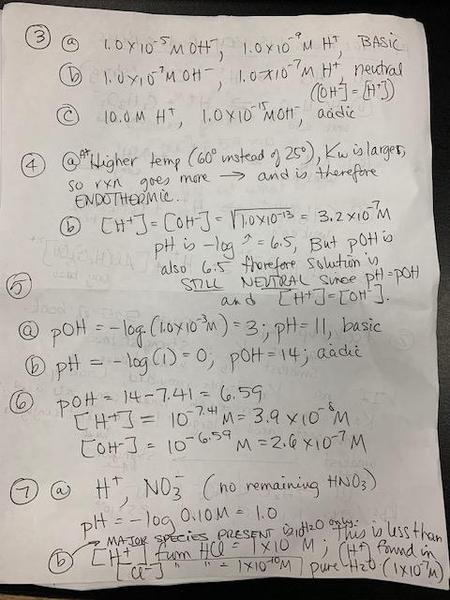 ③ ⓐ 1.0×10⁻⁵ M OH⁻, 1.0×10⁻⁹ M H⁺, BASIC
ⓑ 1.0×10⁻⁷ M OH⁻, 1.0×10⁻⁷ M H⁺, neutral
([OH⁻] = [H⁺])
ⓒ 10.0 M H⁺, 1.0×10⁻¹⁵ M OH⁻, acidic
④ ⓐ At Higher temp (60° instead of 25°), Kw is larger,
so rxn goes more → and is therefore
ENDOTHERMIC.
ⓑ [H⁺] = [OH⁻] = √1.0×10⁻¹³ = 3.2×10⁻⁷ M
pH is -log ↗ = 6.5, But pOH is
also 6.5 therefore solution is
STILL NEUTRAL since pH = pOH
and [H⁺] = [OH⁻].
⑤
ⓐ pOH = -log(1.0×10⁻³ M) = 3; pH = 11, basic
ⓑ pH = -log(1) = 0, pOH = 14; acidic
⑥ pOH = 14 - 7.41 = 6.59
[H⁺] = 10⁻⁷·⁴¹ M = 3.9×10⁻⁸ M
[OH⁻] = 10⁻⁶·⁵⁹ M = 2.6×10⁻⁷ M
⑦ ⓐ H⁺, NO₃⁻ (no remaining HNO₃)
pH = -log 0.10 M = 1.0
MAJOR SPECIES PRESENT is H₂O only.
ⓑ [H⁺] from HCl = 1×10⁻¹⁰ M; This is less than
[Cl⁻] " " = 1×10⁻¹⁰ M [H⁺] found in
pure H₂O (1×10⁻⁷ M)